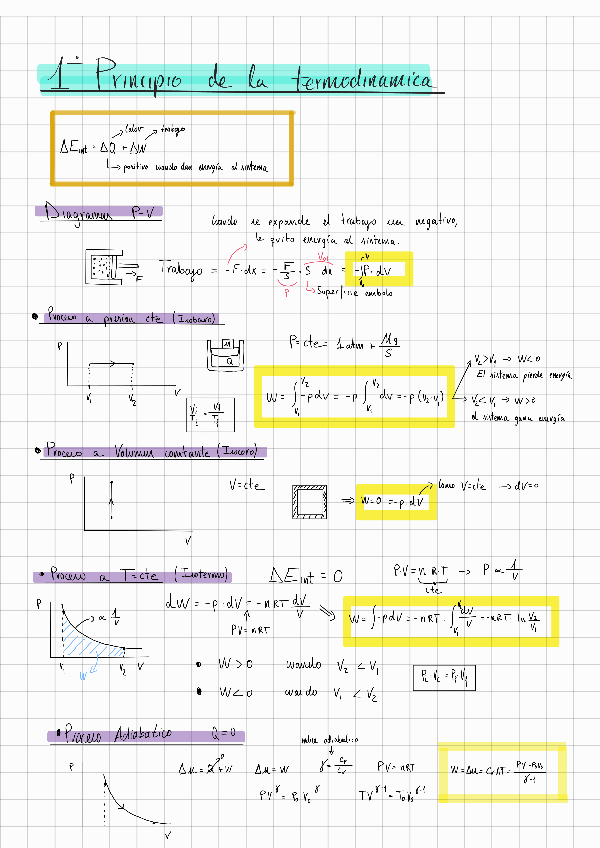 1er Principio de la termodinamica
Calor trabajo
ΔE_int = ΔQ + ΔW
→ positivo cuando dan energía al sistema
Diagramas P-V
Cuando se expande el trabajo es negativo,
le quito energía al sistema.
Trabajo = -F·dx = -F/S · S dx = -∫P·dV
F
P
Vol
Superficie embolo
Proceso a presion cte (Isobaro)
P
V₁ V₂ V
M
Q
P=cte = 1 atm + Mg/S
Vi/Ti = Vf/Tf
W = ∫_{V₁}^{V₂} -p dV = -p ∫_{V₁}^{V₂} dV = -p (V₂-V₁)
V₂>V₁ → W<0
El sistema pierde energía
V₂<V₁ → W>0
el sistema gana energía
Proceso a Volumen constante (Isocoro)
P
V
V=cte
⇒ W=0 = -p·dV
Como V=cte → dV=0
Proceso a T=cte (Isotermo)
ΔE_int = 0
P·V = n·R·T → P ∝ 1/V
cte
P
∝ 1/V
V₁ V₂ V
W
dW = -p·dV = -nRT dV/V
PV=nRT
⇒ W = ∫-p dV = -nRT · ∫_{V₁}^{V₂} dV/V = -nRT ln V₂/V₁
• W>0 cuando V₂ < V₁
• W<0 cuando V₁ < V₂
Pi·Vi = Pf·Vf
Proceso Adiabatico Q=0
P
V
indice adiabatico
Δu = Q + W
0
Δu = W
γ = Cp/Cv
PV = nRT
PV^γ = P₀V₀^γ
TV^γ-1 = T₀V₀^γ-1
W = Δu = Cv ΔT = PV-P₀V₀/γ-1